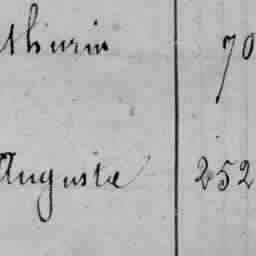 thurin 70
Auguste 252